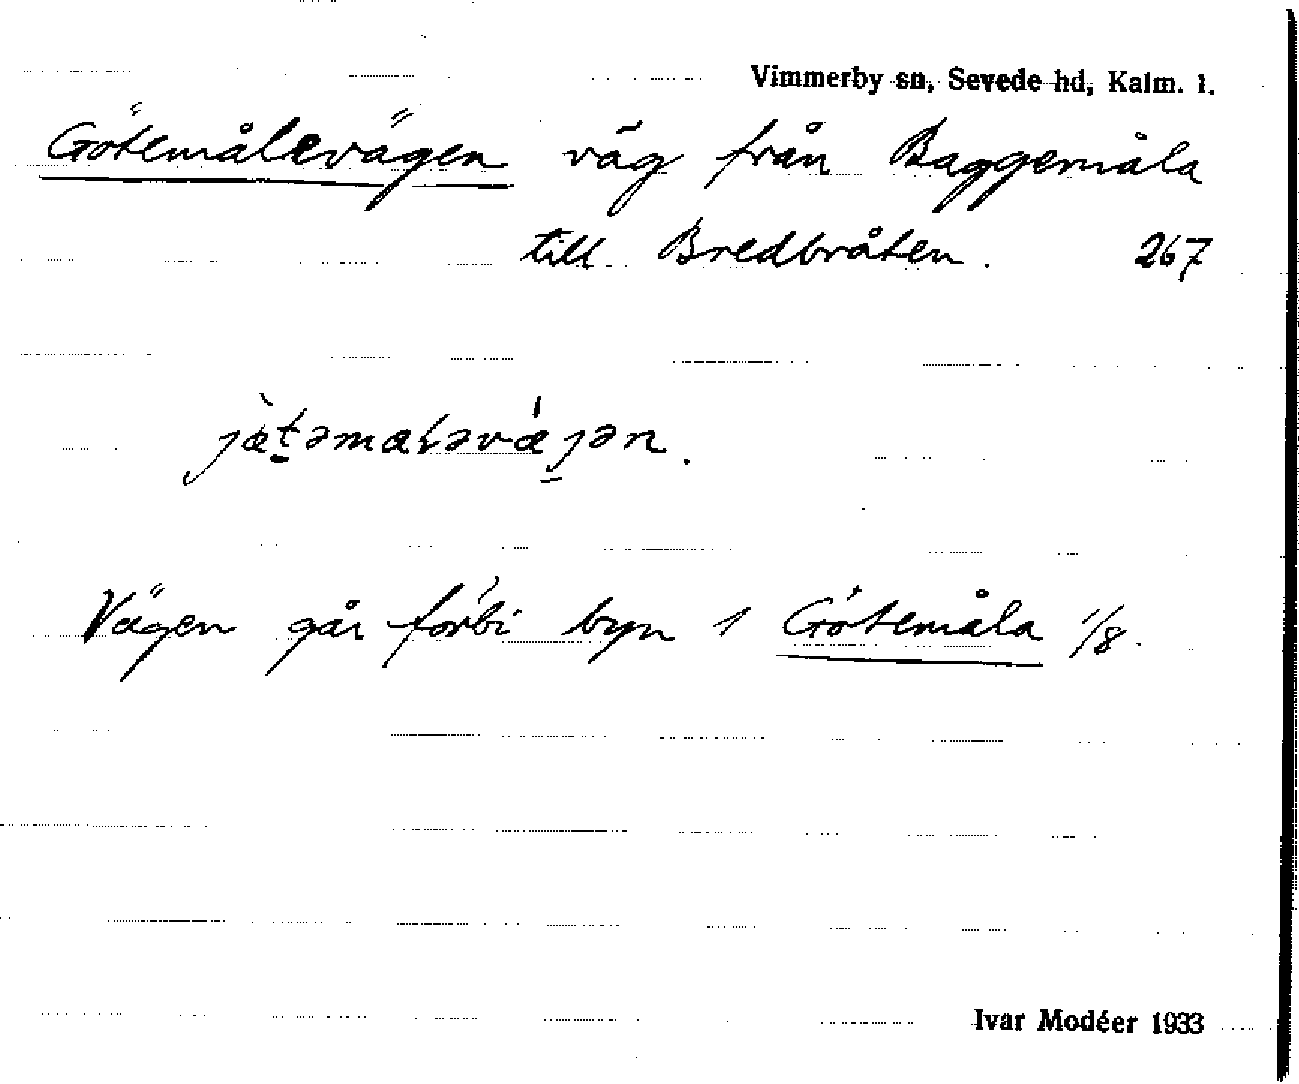 Vimmerby sn, Sevede hd, Kalm. l.
Götemålevägen väg från Baggemåla
till Bredbråten. 267
Vägen går förbi byn 1 Götemåla 1/8.
Ivar Modéer 1933